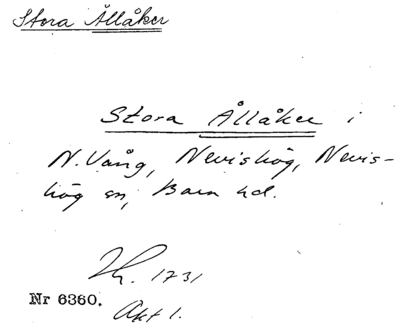 Stora Ållåker
Stora Ållåker i
N. Vång, Nevishög, Nevis-
hög sn, Bara hd.
Lh. 1731
Nr 6360. Akt 1.